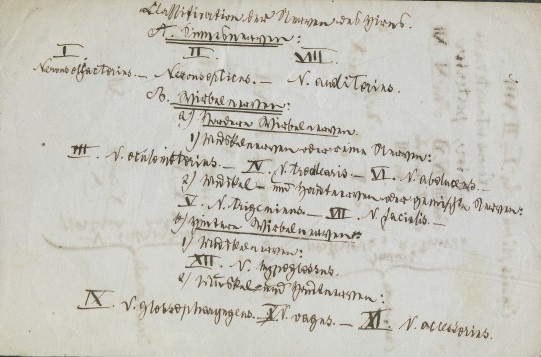 Classification der Nerven des Hirns.
A. Sinnesnerven:
I. II. VIII.
Nervus olfactorius. — Nervus opticus. — N. auditorius.
B. Wirbelnerven:
a) Vordere Wirbelnerven
1) Muskelnerven oder reine Nerven:
III. N. oculomotorius. — IV. N. trochlearis — VI. N. abducens. —
2) Muskel- und Hautnerven oder gemischte Nerven:
V. N. trigeminus. — VII. N. facialis. —
b) Hintere Wirbelnerven:
1) Muskelnerven:
XII. N. hypoglossus.
2) Muskel- und Hautnerven:
IX. N. glossopharyngeus. — X. N. vagus. — XI. N. accessorius.